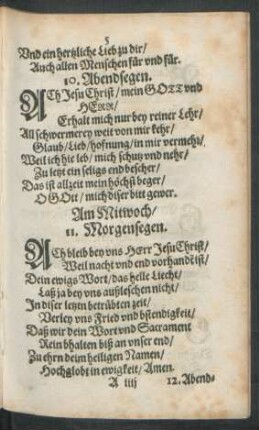 5
Vnd ein hertzliche Lieb zu dir/
Auch allen Menschen für vnd für.
10. Abendsegen.
ACh Jesu Christ/ mein GOTT vnd
HERR/
Erhalt mich nur bey reiner Lehr/
All schwermerey weit von mir kehr/
Glaub/ Lieb/ hofnung/ in mir vermehr/
Weil ich hie leb/ mich schutz vnd nehr/
Zu letzt ein seligs end bescher/
Das ist allzeit mein höchst beger/
O GOtt/ mich diser bitt gewer.
Am Mittwoch/
11. Morgensegen.
ACh bleib bey vns HErr Jesu Christ/
Weil nacht vnd end vorhandē ist/
Dein ewigs Wort/ das helle Liecht/
Laß ja bey vns außleschen nicht/
In diser letzn betrübten zeit/
Verley vns Fried vnd bstendigkeit/
Daß wir dein Wort vnd Sacrament
Rein bhalten biß an vnser end/
Zu ehrn deim heiligen Namen/
Hochglobt in ewigkeit/ Amen.
A iiij 12. Abend-